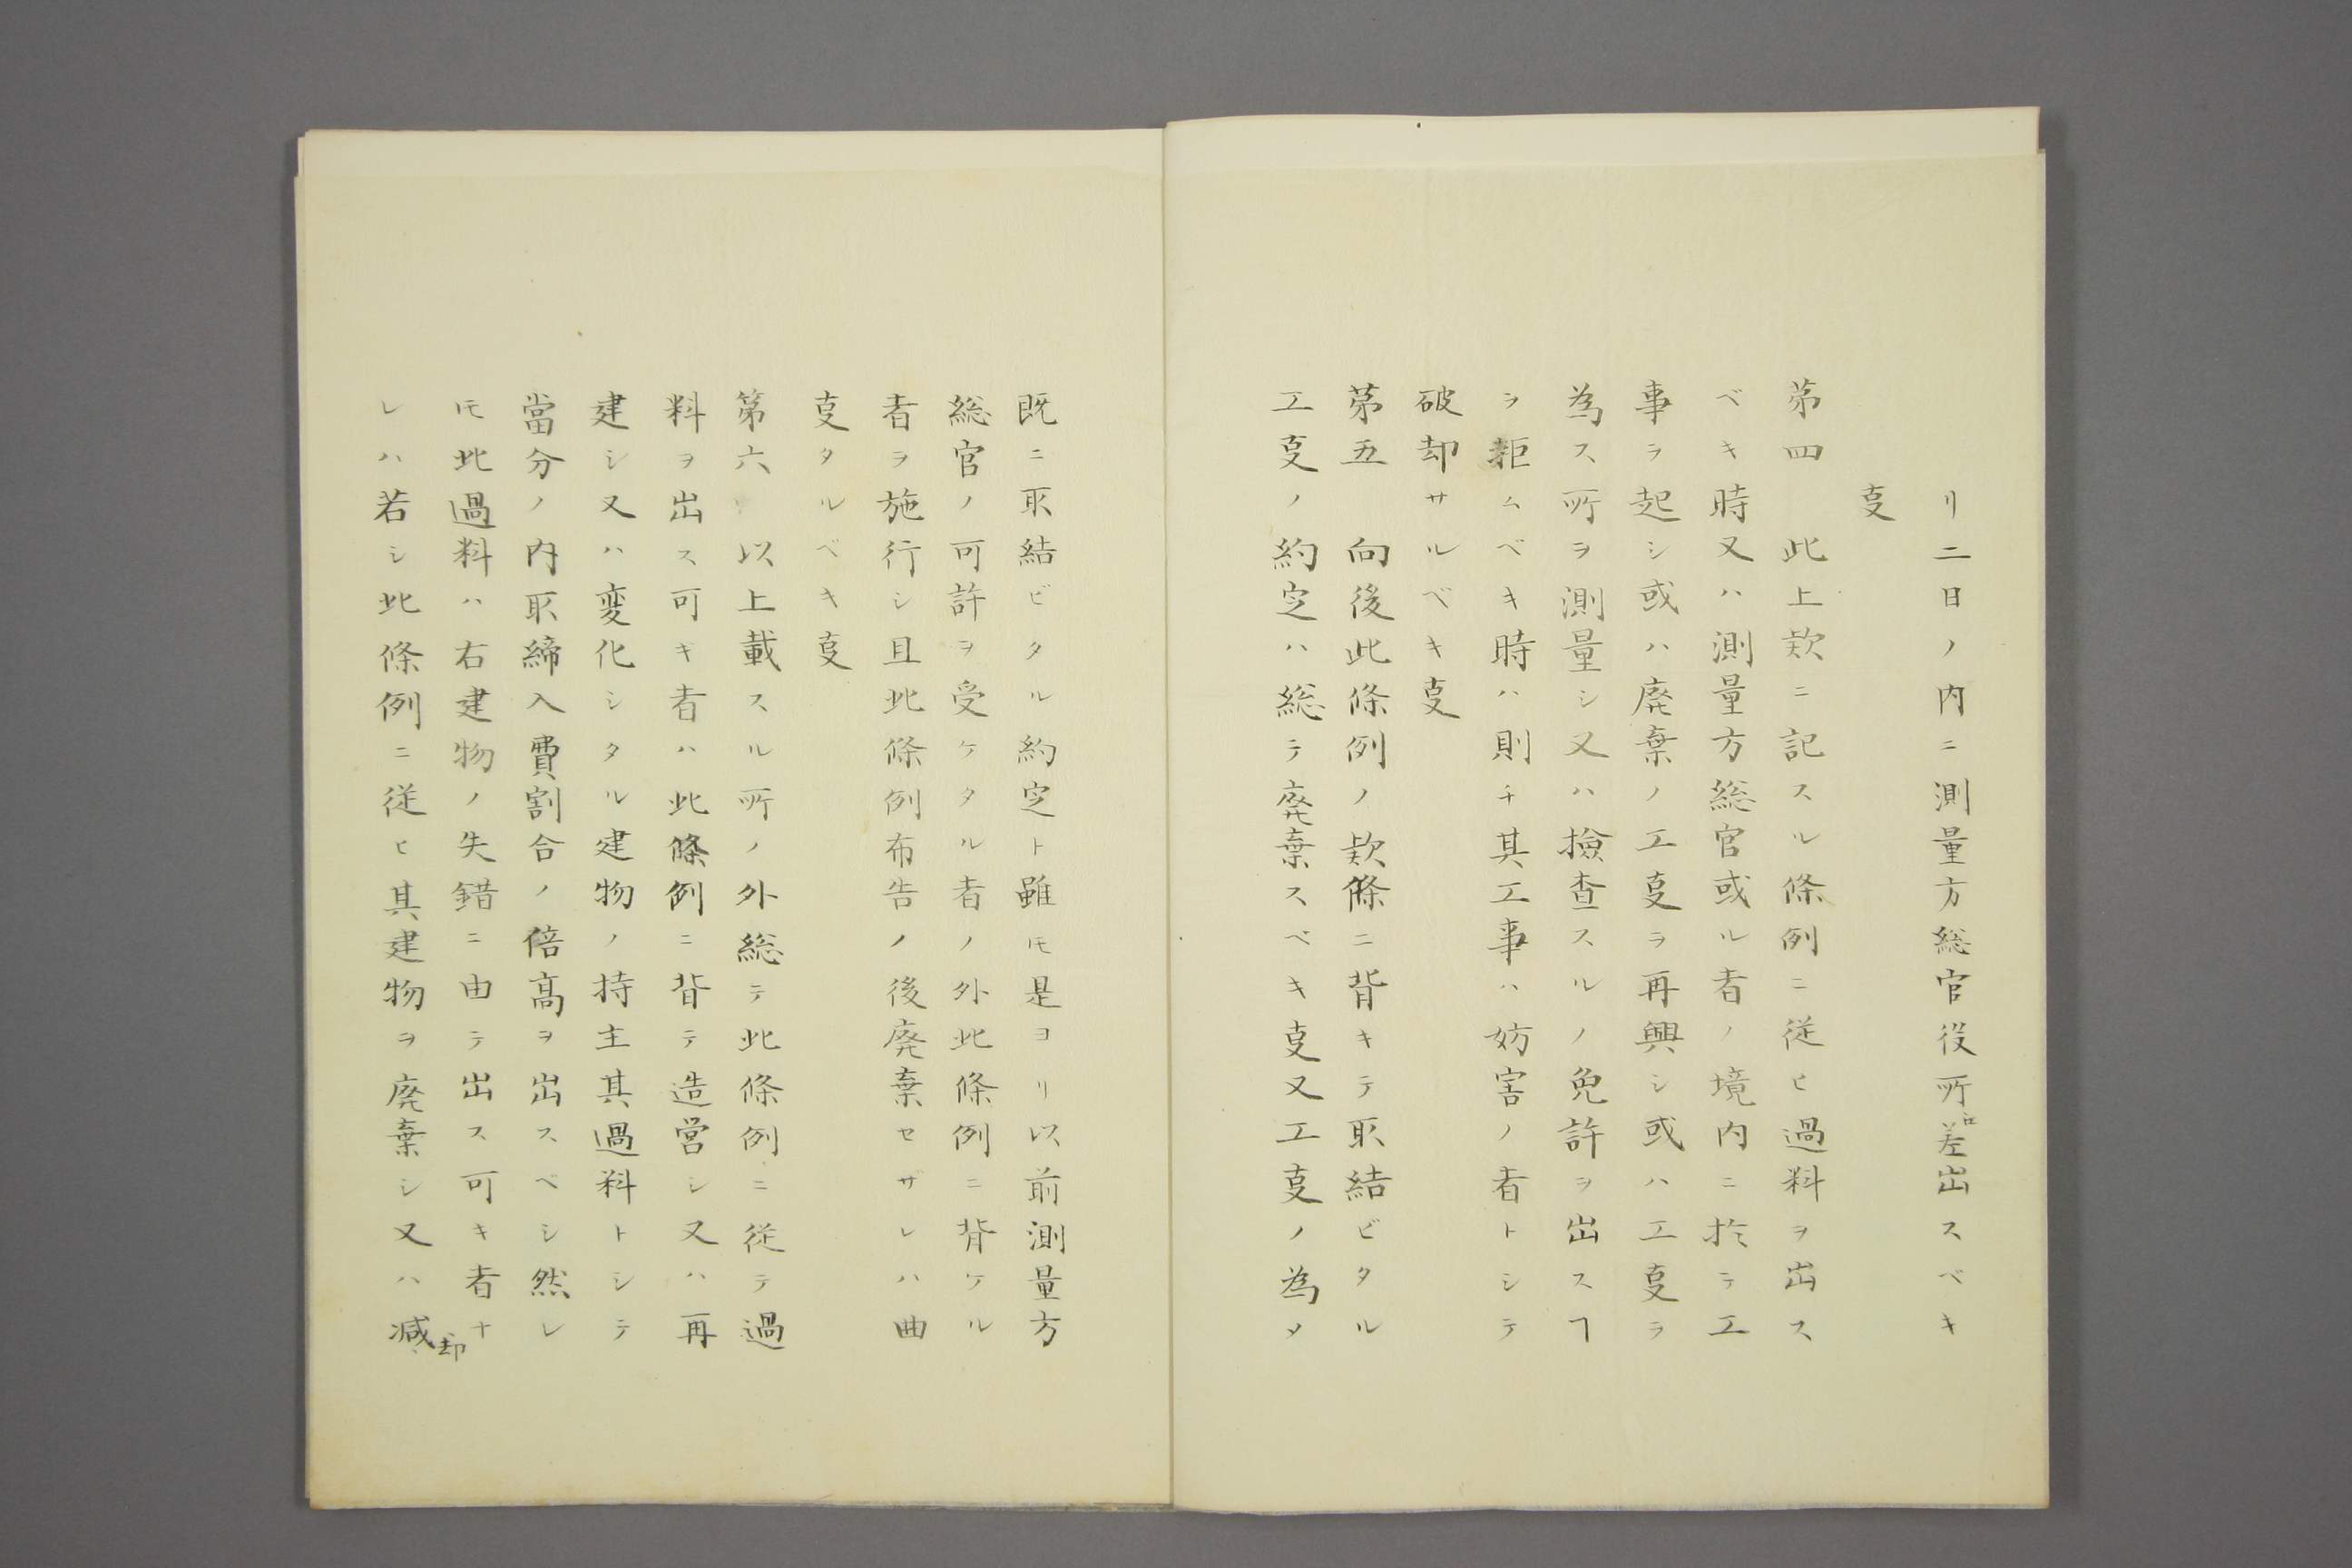 リ二日ノ内ニ測量方総官役所ニ差出スベキ
㕝
第四　此上欵ニ記スル條例ニ従ヒ過料ヲ出ス
ベキ時又ハ測量方総官或ル者ノ境内ニ於テ工
事ヲ起シ或ハ廃棄ノ工㕝ヲ再興シ或ハ工㕝ヲ
為ス所ヲ測量シ又ハ撿査スルノ免許ヲ出スヿ
ヲ拒ムベキ時ハ則チ其工事ハ妨害ノ者トシテ
破却サルベキ㕝
第五　向後此條例ノ欵條ニ背キテ取結ビタル
工㕝ノ約定ハ総テ廃棄スベキ㕝又工㕝ノ為メ
既ニ取結ビタル約定ト雖𪜈是ヨリ以前測量方
総官ノ可許ヲ受ケタル者ノ外此條例ニ背ケル
者ヲ施行シ且此條例布告ノ後廃棄セザレハ曲
㕝タルベキ㕝
第六　以上載スル所ノ外総テ此條例ニ従テ過
料ヲ出ス可キ者ハ此條例ニ背テ造営シ又ハ再
建シ又ハ変化シタル建物ノ持主其過料トシテ
當分ノ内取締入費割合ノ倍高ヲ出スベシ然レ
𪜈此過料ハ右建物ノ失錯ニ由テ出ス可キ者ナ
レハ若シ此條例ニ従ヒ其建物ヲ廃棄シ又ハ減
却